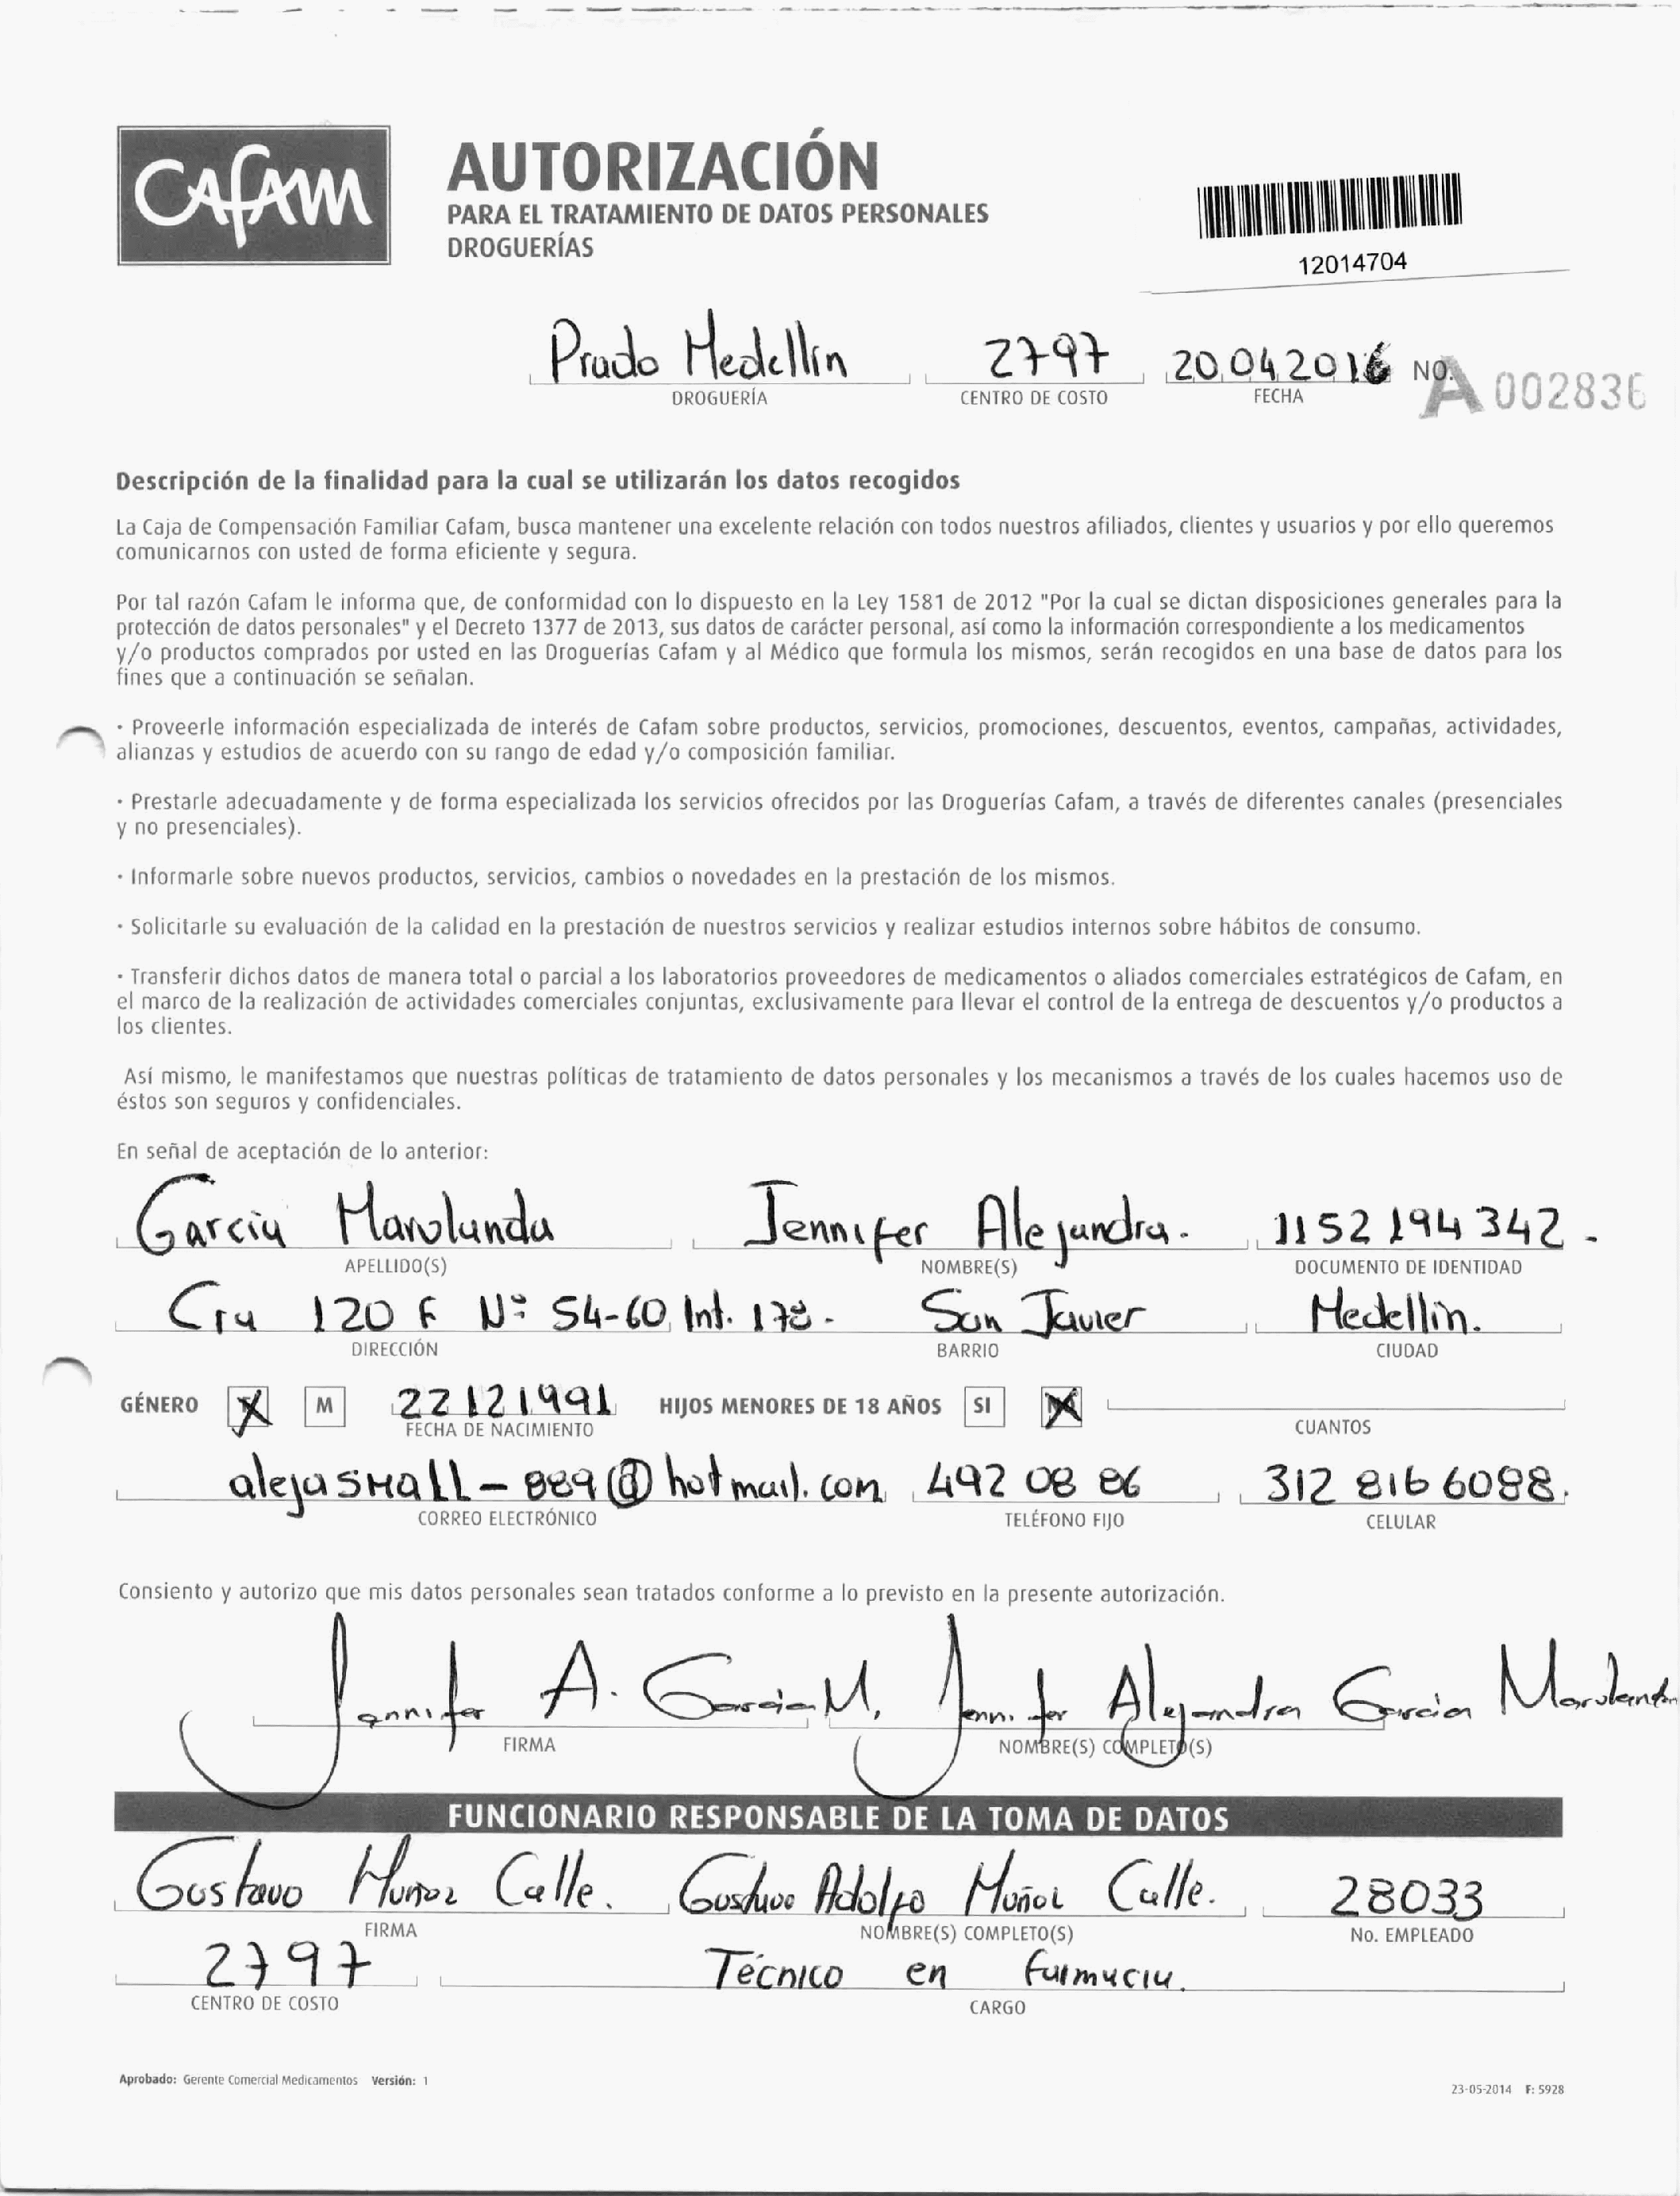 Cafam
AUTORIZACIÓN
PARA EL TRATAMIENTO DE DATOS PERSONALES
DROGUERÍAS
12014704
Prado Medellin 2797 20042016 NO. A 002836
DROGUERÍA CENTRO DE COSTO FECHA
Descripción de la finalidad para la cual se utilizarán los datos recogidos
La Caja de Compensación Familiar Cafam, busca mantener una excelente relación con todos nuestros afiliados, clientes y usuarios y por ello queremos
comunicarnos con usted de forma eficiente y segura.
Por tal razón Cafam le informa que, de conformidad con lo dispuesto en la Ley 1581 de 2012 "Por la cual se dictan disposiciones generales para la
protección de datos personales" y el Decreto 1377 de 2013, sus datos de carácter personal, así como la información correspondiente a los medicamentos
y/o productos comprados por usted en las Droguerías Cafam y al Médico que formula los mismos, serán recogidos en una base de datos para los
fines que a continuación se señalan.
· Proveerle información especializada de interés de Cafam sobre productos, servicios, promociones, descuentos, eventos, campañas, actividades,
alianzas y estudios de acuerdo con su rango de edad y/o composición familiar.
· Prestarle adecuadamente y de forma especializada los servicios ofrecidos por las Droguerías Cafam, a través de diferentes canales (presenciales
y no presenciales).
· Informarle sobre nuevos productos, servicios, cambios o novedades en la prestación de los mismos.
· Solicitarle su evaluación de la calidad en la prestación de nuestros servicios y realizar estudios internos sobre hábitos de consumo.
· Transferir dichos datos de manera total o parcial a los laboratorios proveedores de medicamentos o aliados comerciales estratégicos de Cafam, en
el marco de la realización de actividades comerciales conjuntas, exclusivamente para llevar el control de la entrega de descuentos y/o productos a
los clientes.
Así mismo, le manifestamos que nuestras políticas de tratamiento de datos personales y los mecanismos a través de los cuales hacemos uso de
éstos son seguros y confidenciales.
En señal de aceptación de lo anterior:
Garcia Marulanda Jennifer Alejandra. 1152194342.
APELLIDO(S) NOMBRE(S) DOCUMENTO DE IDENTIDAD
Cra 120 F Nº 54-60 Int. 178. San Javier Medellin.
DIRECCIÓN BARRIO CIUDAD
GÉNERO X M 22121991 HIJOS MENORES DE 18 AÑOS SI X
FECHA DE NACIMIENTO CUANTOS
alejasmall-889@hotmail.com 492 08 86 312 816 6088.
CORREO ELECTRÓNICO TELÉFONO FIJO CELULAR
Consiento y autorizo que mis datos personales sean tratados conforme a lo previsto en la presente autorización.
Jennifer A. Garcia M. Jennifer Alejandra Garcia Marulanda
FIRMA NOMBRE(S) COMPLETO(S)
FUNCIONARIO RESPONSABLE DE LA TOMA DE DATOS
Gustavo Muñoz Calle. Gustavo Adolfo Muñoz Calle. 28033
FIRMA NOMBRE(S) COMPLETO(S) No. EMPLEADO
2797 Técnico en farmacia.
CENTRO DE COSTO CARGO
Aprobado: Gerente Comercial Medicamentos Versión: 1
23-05-2014 F: 5928